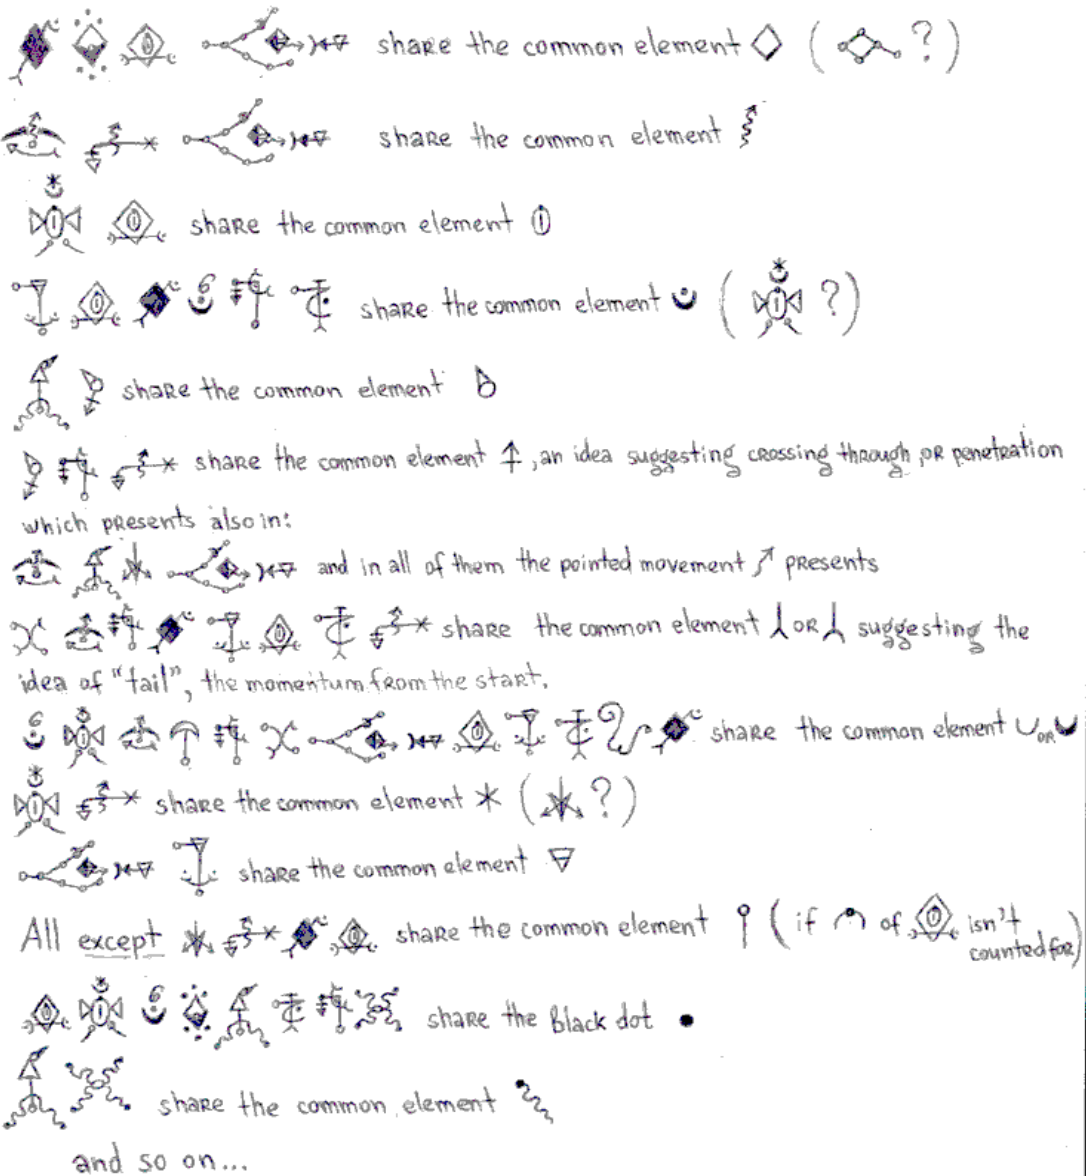 share the common element ( ? )
share the common element
share the common element
share the common element ( ? )
share the common element
share the common element , an idea suggesting crossing through, or penetration
which presents also in:
and in all of them the pointed movement presents
share the common element or suggesting the
idea of "tail", the momentum from the start.
share the common element or
share the common element ( ? )
share the common element
All except share the common element ( if of isn't
counted for)
share the Black dot
share the common element
and so on...